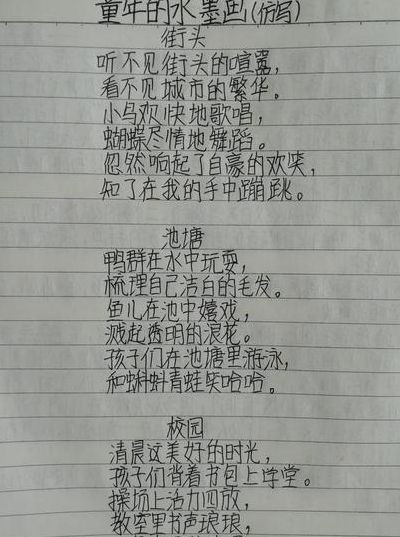 童年的水墨画(仿写)
街头
听不见街头的喧嚣,
看不见城市的繁华。
小鸟欢快地歌唱,
蝴蝶尽情地舞蹈。
忽然响起了自豪的欢笑,
知了在我的手中蹦跳。
池塘
鸭群在水中玩耍,
梳理自己洁白的毛发。
鱼儿在池中嬉戏,
溅起透明的浪花。
孩子们在池塘里游泳,
和蝌蚪青蛙笑哈哈。
校园
清晨这美好的时光,
孩子们背着书包上学堂。
操场上活力四放,
教室里书声琅琅,